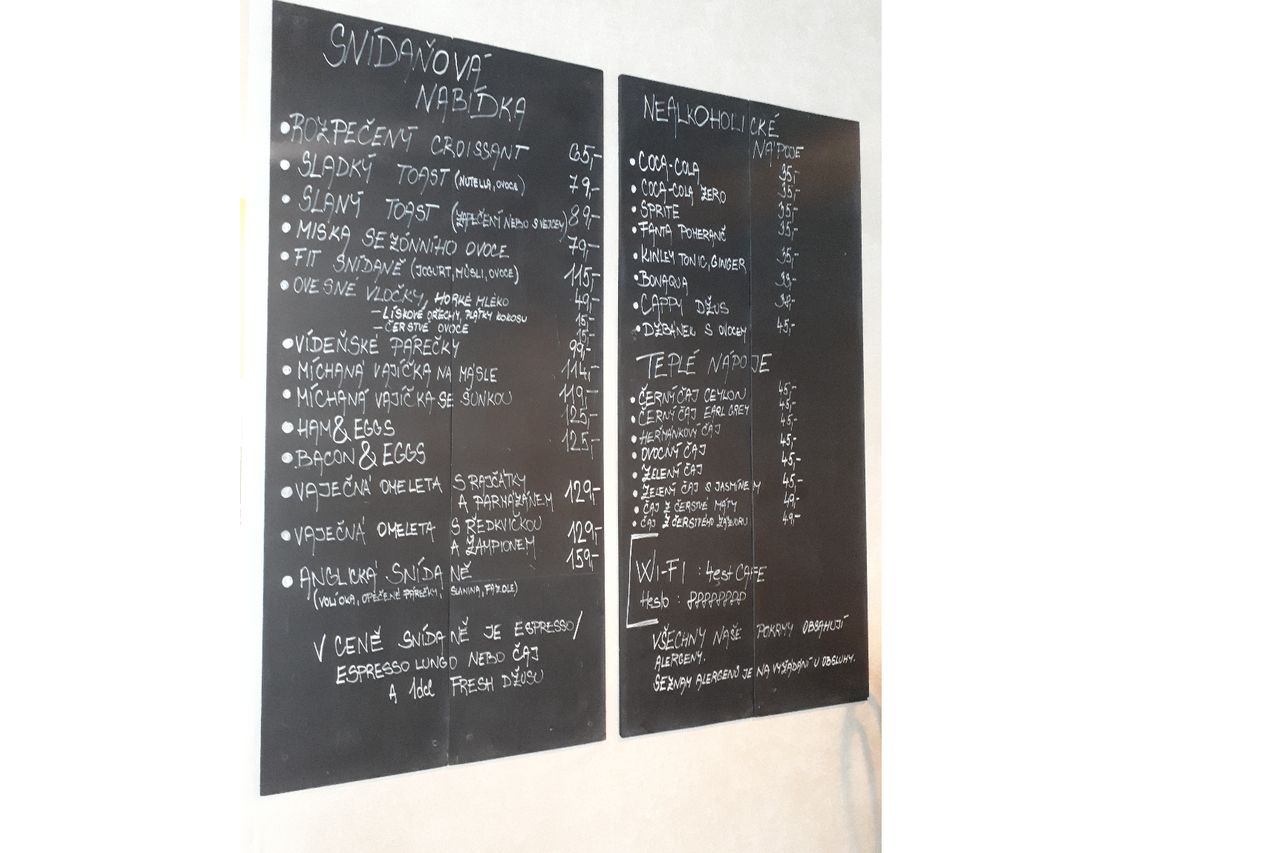 SNÍDAŇOVÁ
NABÍDKA
•ROZPEČENÝ CROISSANT 65,-
• SLADKÝ TOAST (NUTELLA, OVOCE) 79,-
• SLANÝ TOAST (ZAPEČENÝ NEBO S VEJCEM) 89,-
• MISKA SEZÓNNÍHO OVOCE 79,-
• FIT SNÍDANĚ (JOGURT, MÜSLI, OVOCE) 115,-
• OVESNÉ VLOČKY, HORKÉ MLÉKO 49,-
- LÍSKOVÉ OŘECHY, PLÁTKY KOKOSU 15,-
- ČERSTVÉ OVOCE 15,-
• VÍDEŇSKÉ PÁREČKY 99,-
• MÍCHANÁ VAJÍČKA NA MÁSLE 114,-
• MÍCHANÁ VAJÍČKA SE ŠUNKOU 119,-
• HAM & EGGS 125,-
• BACON & EGGS 125,-
• VAJEČNÁ OMELETA S RAJČÁTKY
A PARMAZÁNEM 129,-
• VAJEČNÁ OMELETA S ŘEDKVIČKOU
A ŽAMPIONEM 129,-
• ANGLICKÁ SNÍDANĚ 159,-
(VOLÍ OKA, OPEČENÉ PÁREČKY, SLANINA, FAZOLE)
V CENĚ SNÍDANĚ JE ESPRESSO/
ESPRESSO LUNGO NEBO ČAJ
A 1dcl FRESH DŽUSU
NEALKOHOLICKÉ
NÁPOJE
• COCA-COLA 35,-
• COCA-COLA ZERO 35,-
• SPRITE 35,-
• FANTA POMERANČ 35,-
• KINLEY TONIC, GINGER 35,-
• BONAQUA
• CAPPY DŽUS
• DŽBÁNEK S OVOCEM 45,-
TEPLÉ NÁPOJE
• ČERNÝ ČAJ CEYLON 45,-
• ČERNÝ ČAJ EARL GREY 45,-
• HEŘMÁNKOVÝ ČAJ 45,-
• OVOCNÝ ČAJ 45,-
• ZELENÝ ČAJ 45,-
• ZELENÝ ČAJ S JASMÍNEM 45,-
• ČAJ Z ČERSTVÉ MÁTY 49,-
• ČAJ Z ČERSTVÉHO ZÁZVORU 49,-
WI-FI : 4est CAFE
Heslo :
VŠECHNY NAŠE POKRMY OBSAHUJÍ
ALERGENY.
SEZNAM ALERGENŮ JE NA VYŽÁDÁNÍ U OBSLUHY.